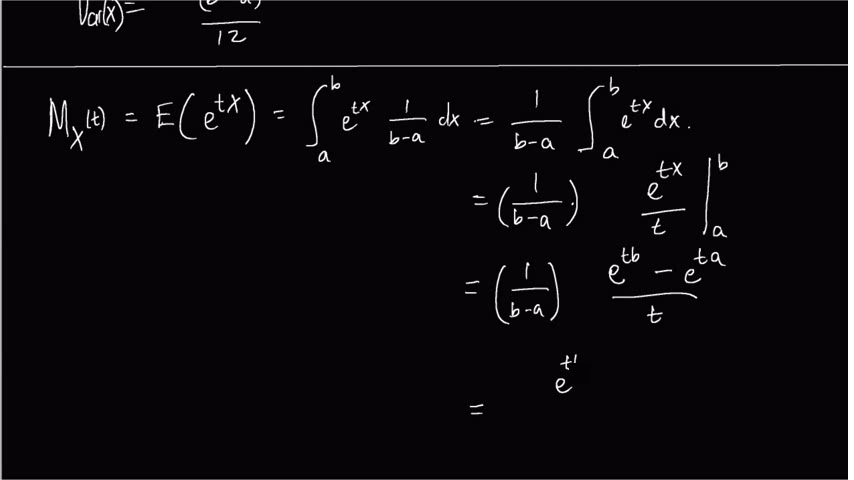 Var(X) = (b-a)² / 12
M_X(t) = E(e^{tX}) = ∫_a^b e^{tx} 1/(b-a) dx = 1/(b-a) ∫_a^b e^{tx} dx.
= (1/(b-a)) e^{tx}/t |_a^b
= (1/(b-a)) (e^{tb} - e^{ta})/t
= e^{t'}